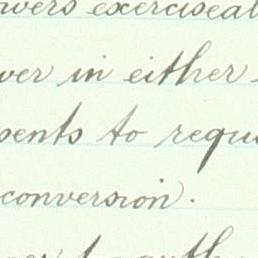 owers exerciseab
ver in either
sents to requi
conversion.